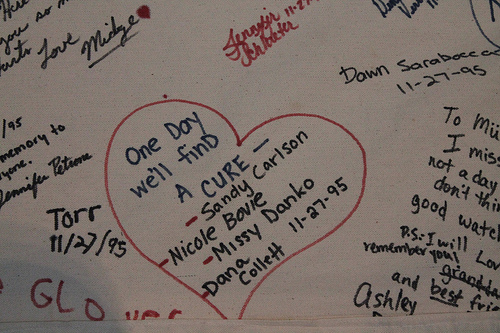 Here
you so m
Love Midge
Jennifer 11-27
Dawn Saraboccad
11-27-95
/95
memory to
yone.
Jennifer Petrone
Torr
11/27/95
One Day
we'll find
A CURE —
- Sandy Carlson
- Nicole Bovie
- Missy Danko
- Dana Collett 11-27-95
To Mu
I miss
not a day
don't thin
good watch
P.S. I will
remember you!
Lov
granda
and best frie
Ashley
GLO